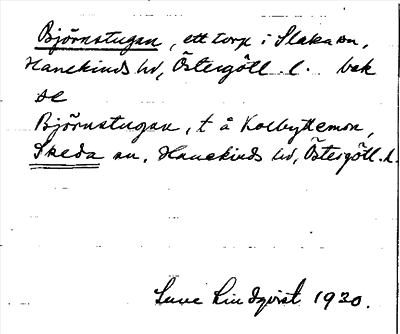 Björnstugan, ett torp i Slaka sn,
Hanekinds hd, Östergötl. l. bak
se
Björnstugan, t å Kolbyttemon,
Skeda sn, Hanekinds hd, Östergötl. l.
Sune Lindqvist 1920.